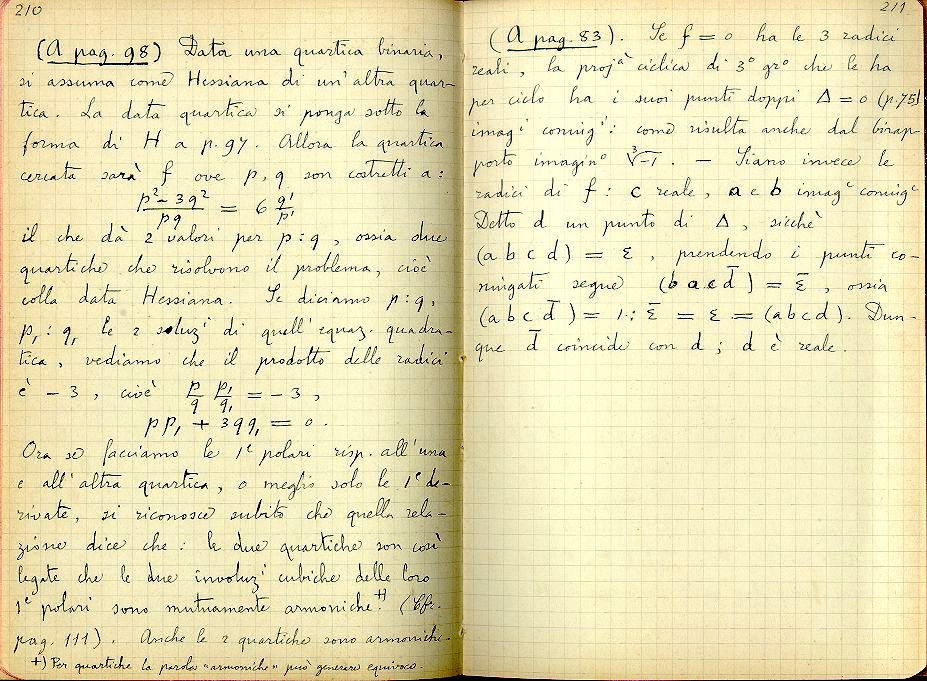 210
(A pag. 98) Data una quartica binaria,
si assuma come Hessiana di un'altra quar-
tica. La data quartica si ponga sotto la
forma di H a p. 97. Allora la quartica
cercata sarà f ove p, q son costretti a:
p² - 3q² / pq = 6 q'/p'
il che dà 2 valori per p:q, ossia due
quartiche che risolvono il problema, cioè
colla data Hessiana. Se diciamo p:q,
p₁:q₁ le 2 soluzⁱ di quell'equaz. quadra-
tica, vediamo che il prodotto delle radici
è -3, cioè p/q p₁/q₁ = -3,
pp₁ + 3qq₁ = 0.
Ora se facciamo le 1ᵉ polari risp. all'una
e all'altra quartica, o meglio solo le 1ᵉ de-
rivate, si riconosce subito che quella rela-
zione dice che: le due quartiche son così
legate che le due involuzⁱ cubiche delle loro
1ᵉ polari sono mutuamente armoniche. +) (Cfr.
pag. 111). Anche le 2 quartiche sono armoniche.
+) Per quartiche la parola "armoniche" può generare equivoco.
211
(A pag. 83). Se f = 0 ha le 3 radici
reali, la projᵃ ciclica di 3º grº che le ha
per ciclo ha i suoi punti doppi Δ = 0 (p. 75)
imagⁱ coniugⁱ: come risulta anche dal birap-
porto imaginº ∛-1. — Siano invece le
radici di f: c reale, a e b imagⁱ coniugⁱ
Detto d un punto di Δ, sicchè
(a b c d) = ε, prendendo i punti co-
niugati segue (b a c d̅) = ε̅, ossia
(a b c d̅) = 1: ε̅ = ε = (a b c d). Dun-
que d̅ coincide con d; d è reale.